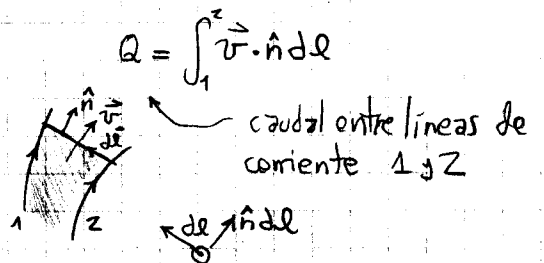 Q = ∫₁² v⃗ · n̂ dl
n̂ v⃗
dl
caudal entre líneas de
corriente 1 y 2
1 2
dl n̂ dl